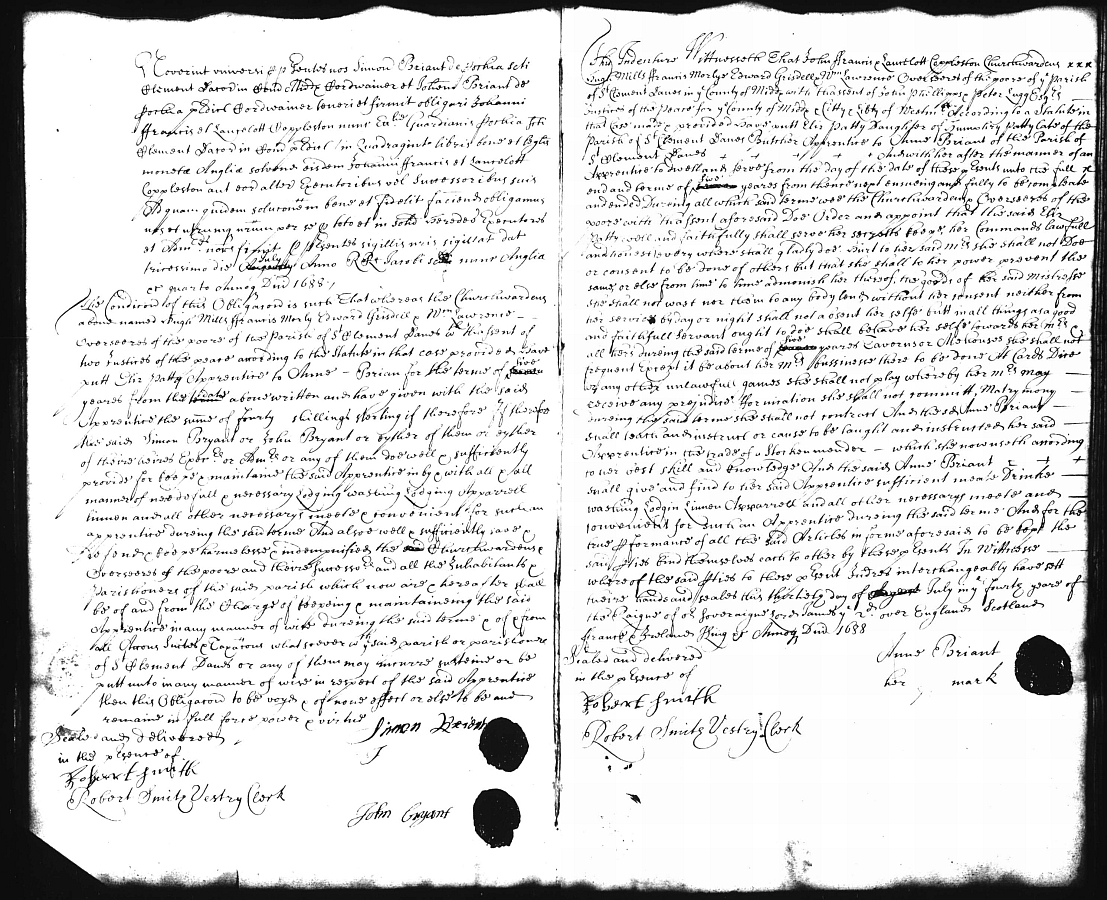 Noverint universi p p sentes nos Simon Briant de pochia scti
Clement Dacor in Com Midx Cordwainer et Johem Briant de
pochia pdict Cordwainer teneri et firmit obligari Johanni
ffrancis et Lancelott Coppleston nunc Guardianis pochia Sti
Clement Dacor in Com pdict in Quadraginta libris bone et leglis
monetæ Angliæ solvend eisdem Johanni ffrancis et Lancelott
Coppleston aut eor alter Executoribus vel Successoribus suis
Ad quam quidem soluconem bene et fidelit faciend obligamus
nos et utrumq nrum per se p toto et in solid Heredes Executores
et Admts nros firmit p psentes sigillis nris sigillat dat
tricessimo die July Anno RRs Jacobi sedi nunc Anglia
et quarto Annoq Dni 1688
The Condicon of this Obligacon is such That whereas the Churchwardens
above named Hugh Mills ffrancis Morly Edward Grisdell & Wm Lawrence
Overseers of the poore of the Parish of St Clement Danes wth th assent of
two Justices of the peace according to the Statute in that case provided have
putt Eliz Patty Apprentice to Anne Brian for the terme of five
yeares from the above written and have given with the said
Apprentice the sume of forty shillings sterling if therefore
the said Simon Bryant or John Bryant or eyther of them or eyther
of theire heires Execrs or Admrs or any of them doe well & sufficiently
provide for keepe & maintaine the said Apprentice in by & with all & all
manner of needefull & necessary Lodging washing Lodging Apparrell
linnen and all other necessarys meete & convenient for such an
apprentice during the said terme And also well & sufficiently save &
defend & keepe harmelesse & indempnified the Churchwardens &
Overseeres of the poore and theire Successors and all the Inhabitants &
parishioners of the said parish which now are & hereafter shall
be of and from the Charge of keeping & maintaineing the said
Apprentice in any manner of wise during the said terme & of & from
all Accons Suites & Taxacons whatsoever wch ye said parish or parishioners
of St Clement Danes or any of them may incurre susteine or be
putt unto in any manner of wise in respect of the said Apprentice
then this Obligacon to be voyd & of none effect or else to be and
remaine in full force power & virtue
Sealed and delivered
in the psence of
Robert Smith
Robert Smith Vestry Clerk
Simon Briant
John Bryant
This Indenture Wittnesseth That John ffrancis & Lancelott Coppleston Churchwardens x x x
Hugh Mills ffrancis Morlye Edward Grisdell & Wm Lawrence Overseers of the poore of ye Parish
of St Clement Danes in ye County of Middx with th assent of John Phillipps & Peter Lugg Esqrs
Justices of the peace for ye County of Middx & Citty & Libty of Westmr According to a Statute in
that Case made & provided have putt Eliz Patty Daughter of Humphry Patty late of the
Parish of St Clement Danes Butcher Apprentice to Anne Briant of the Parish of
St Clement Danes + + + + And with her after the manner of an
Apprentice to dwell and serve from the day of the date of these psents unto the full
end and terme of five yeares from thence next ensueing and fully to be compleate
and ended During all which said terme wee the Churchwardens & Overseeres of the
poore with th assent aforesaid Doe Order and appoint that the said Eliz
Patty well and faithfully shall serve her secretts keepe, her Commands lawfull
and honest every where shall gladly doe. Hurt to her said Mrs she shall not Doe
or consent to be done of others but that she shall to her power prevent the
same, or else from time to time admonish her thereof, the goods of her said Mistresse
she shall not wast nor them to any body lend without her consent neither from
her service by day or night shall not absent her selfe butt in all things as a good
and faithfull servant ought to doe shall behave her selfe towards her Mrs &
all hers during the said terme of five yeares Taverns or Alehouses she shall not
frequent Except it be about her Mrs bussinesse there to be done At Cards Dice
or any other unlawfull games she shall not play whereby her Mrs may
receive any prejudice ffornication she shall not committ, Matrymony
during the said terme she shall not contract And the sd Anne Briant
shall teach and instruct or cause to be taught and instructed her said
Apprentice in the trade of a Stocken mender which she now useth according
to her best skill and knowledge And the said Anne Briant + +
shall give and find to her said Apprentice sufficient meate Drincke
washing Lodgin Linnen Apparrell and all other necessarys meete and
convenient for such an Apprentice dureing the said terme And for the
true pformance of all the said Articles in forme aforesaid to be kept the
said pties bind themselves each to other by these psents In Wittnesse
whereof the said pties to these psent Indres interchangeably have sett
theire hands and seales this thirtiety day of July in ye fourty yeare of
the Raigne of or Soveraigne Lord James ye 2d over England Scotland
ffrance & Ireland King &c Annoq Dni 1688
Sealed and delivered
in the psence of
Robert Smith
Robert Smith Vestry Clerk
Anne Briant
her mark